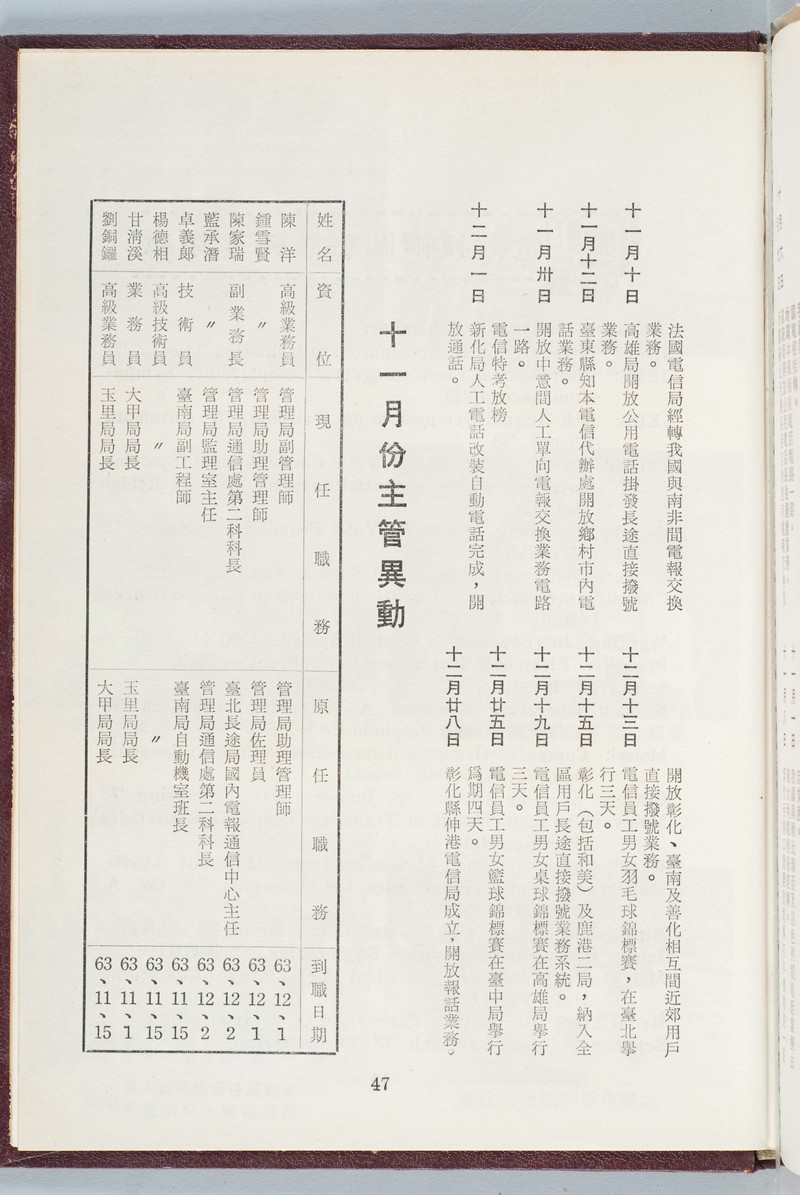 法國電信局經轉我國與南非間電報交換
業務。
十一月十日
高雄局開放公用電話掛發長途直接撥號
業務。
十一月十二日
臺東縣知本電信代辦處開放鄉村市內電
話業務。
十一月卅日
開放中意間人工單向電報交換業務電路
一路。
電信特考放榜
十二月一日
新化局人工電話改裝自動電話完成，開
放通話。
開放彰化、臺南及善化相互間近郊用戶
直接撥號業務。
十二月十三日
電信員工男女羽毛球錦標賽，在臺北舉
行三天。
十二月十五日
彰化（包括和美）及鹿港二局，納入全
區用戶長途直接撥號業務系統。
十二月十九日
電信員工男女桌球錦標賽在高雄局舉行
三天。
十二月廿五日
電信員工男女籃球錦標賽在臺中局舉行
爲期四天。
十二月廿八日
彰化縣伸港電信局成立，開放報話業務。
十一月份主管異動
姓名 資位 現任職務 原任職務 到職日期
陳洋 高級業務員 管理局副管理師 管理局助理管理師 63、12、1
鍾雪賢 〃 管理局助理管理師 管理局佐理員 63、12、1
陳家瑞 副業務長 管理局通信處第二科科長 臺北長途局國內電報通信中心主任 63、12、2
藍承潛 〃 管理局監理室主任 管理局通信處第二科科長 63、12、2
卓義郎 技術員 臺南局副工程師 臺南局自動機室班長 63、11、15
楊德相 高級技術員 〃 〃 63、11、15
甘淸溪 業務員 大甲局局長 玉里局局長 63、11、1
劉銅鑼 高級業務員 玉里局局長 大甲局局長 63、11、15
47